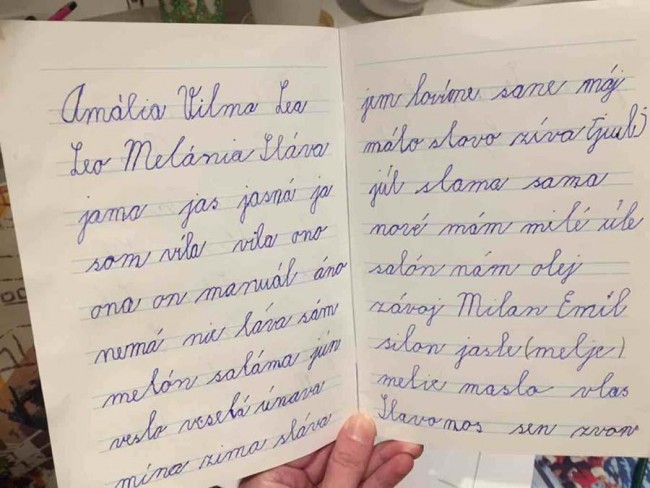 Amália Vilma Lea
Leo Melánia Sláva
jama jas jasná ja
som víla vila ono
ona on manuál áno
nemá nie láva sám
melón saláma jún
veslo veselá únava
mína zima sláva
jem lovíme sane máj
málo slovo zíva (juuj)
júl slama sama
nové mám milé úle
salón nám olej
závoj Milan Emil
silon jasle (melje)
melie maslo vlas
Slavo nos sen zvon